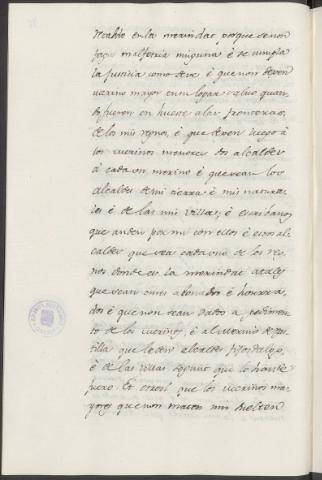 Recabdo en la merindat porque se non
faga malfetria ninguna é se cumpla
la justicia como deve é que non deven
merino mayor en su logar salvo quan-
do fueren en hueste a las fronteras
de los mis regnos, é que deven luego á
los merinos menores dos alcaldes
á cada un merino é que sean los
alcaldes de mi tierra é mis naturales
é de las mis villas, é escribanos
que anden por mi con ellos é esos al-
caldes que sea cada uno de los reg-
nos donde es la merindat atales
que sean omes abonados é honrra-
dos é que non sean dados a pedimien-
to de los merinos, é al merino de Cas-
tilla que le den alcaldes fijosdalgo,
é de las villas segunt que lo han de
fuero. Et otrosi que los merinos ma-
yores que non maten nin suelten